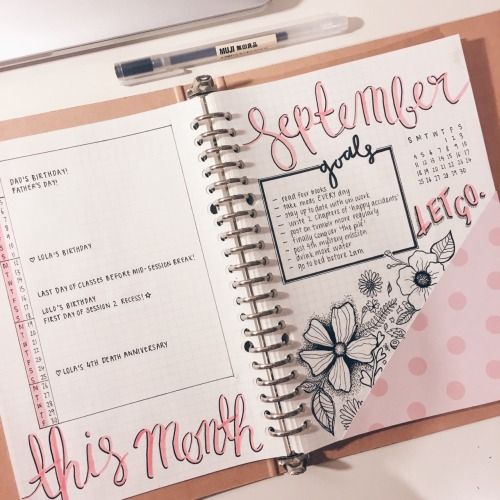 MUJI 無印良品
DAD'S BIRTHDAY!
FATHER'S DAY!
♡ LOLA'S BIRTHDAY
LAST DAY OF CLASSES BEFORE MID-SESSION BREAK!
LOLO'S BIRTHDAY
FIRST DAY OF SESSION 2 RECESS! ☆
♡ LOLA'S 4TH DEATH ANNIVERSARY
this month
September
goals
read four books
take meds EVERY day
stay up to date with uni work
write 2 chapters of 'happy accidents'
post on tumblr more regularly
finally conquer 'the pile'
post 4th mystery mission
drink more water
go to bed before 2am
S M T W T F S
1 2 3
4 5 6 7 8 9 10
11 12 13 14 15 16 17
18 19 20 21 22 23 24
25 26 27 28 29 30
LET GO.